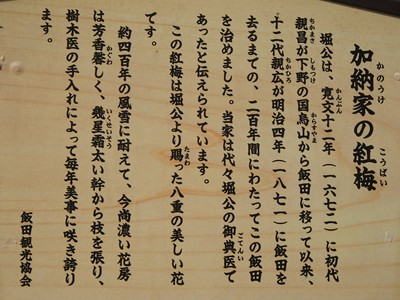 加納家の紅梅
かのうけ
こうばい
堀公は、寛文十二年（一六七二）に初代
かんぶん
親昌が下野の国烏山から飯田に移って以来、
ちかまさ
しもつけ
からすやま
十二代親広が明治四年（一八七一）に飯田を
ちかひろ
去るまでの、二百年間にわたってこの飯田
を治めました。当家は代々堀公の御典医で
ごてんい
あったと伝えられています。
この紅梅は堀公より賜った八重の美しい花
たまわ
です。
約四百年の風雪に耐えて、今尚濃い花房
は芳香馨しく、幾星霜太い幹から枝を張り、
かぐわ
いくせいそう
樹木医の手入れによって毎年美事に咲き誇り
ます。
飯田観光協会